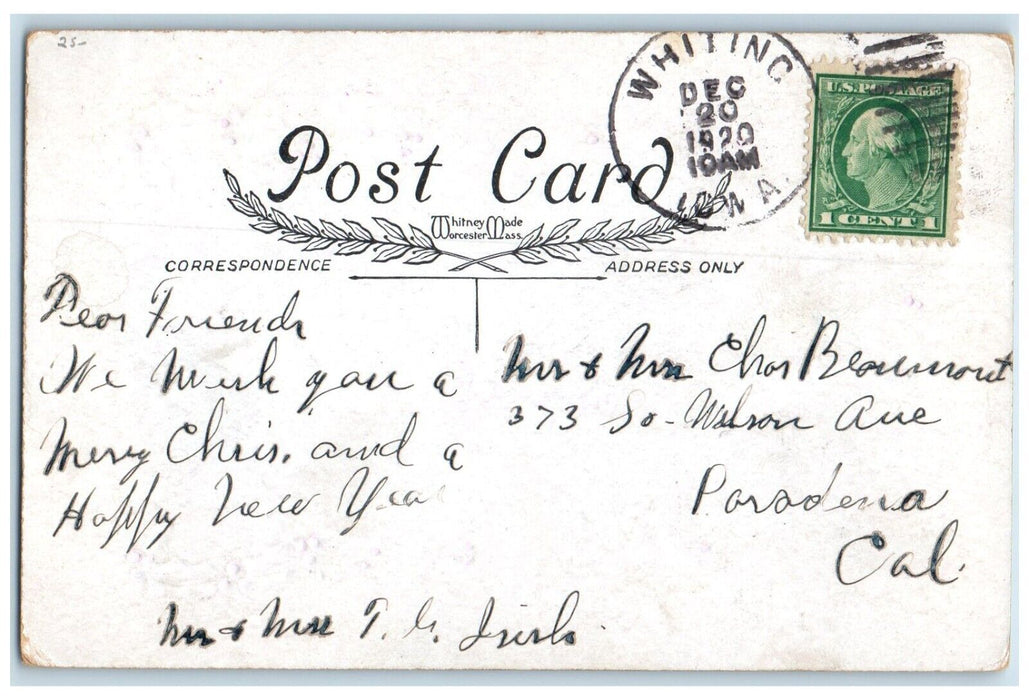 25-
WHITING
DEC
20
1920
10AM
IOWA.
U.S. POSTAGE
1 CENT 1
Post Card
Whitney Made
Worcester Mass.
CORRESPONDENCE
ADDRESS ONLY
Dear Friends
We Wish you a
Merry Chris. and a
Happy New Year
Mr & Mrs T. G.
Mr & Mrs Chas Beaumont
373 So - Wilson Ave
Pasadena
Cal.